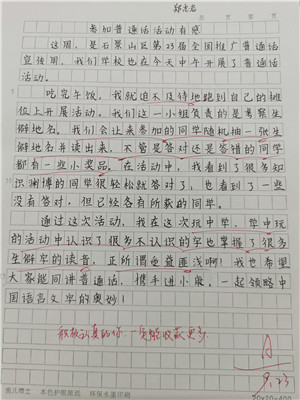 郑志君
参加普通话活动有感
这周,是石景山区第23届全国推广普通话
宣传周,我们学校也在今天中午开展了普通话
活动。
吃完午饭,我就迫不及待地跑到自己的摊
位上开展活动。我们这一小组负责的是考察生
僻地名。我们会让来参加的同学随机抽一张生
僻地名并读出来,不管是答对还是答错的同学
都有一些小奖品。在活动中,我看到了很多知
识渊博的同学很轻松就答对了,也看到了一些
没有答对,但已经各有所获的同学。
通过这次活动,我在这次玩中学,学中玩
的活动中认识了很多不认识的字也掌握了很多
生僻字的读音,正所谓受益匪浅啊!我也希望
大家能同讲普通话,携手进小康,一起领略中
国语言文字的奥妙!
积极认真的你一定能收获更多。
A
9.23
本色护眼纸张 环保水墨印刷
20×20=400